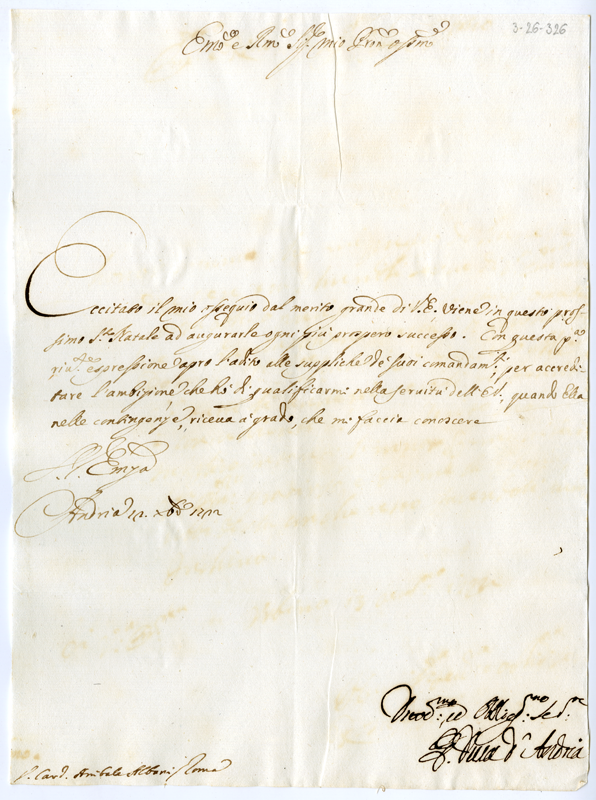 3-26-326
Em.o e R.mo Sig.r mio Pron. oss.mo
Eccitato il mio ossequio dal merito grande di V.E. viene in questo pros-
simo S.to Natale ad augurarle ogni più prospero successo. Con questa
espressione apro l'adito alle suppliche de suoi comandam.ti per accredi-
tare l'ambizione che hò di qualificarmi nella servitù dell'E.V. quando Ella
nelle contingenze riceva à grado, che mi faccia conoscere
Di V. Em.za
Andria 12. Xbre 1712
Divot.mo ed Obligat.mo Ser.re
Il Duca d'Andria
S. Card. Anibale Albani Roma